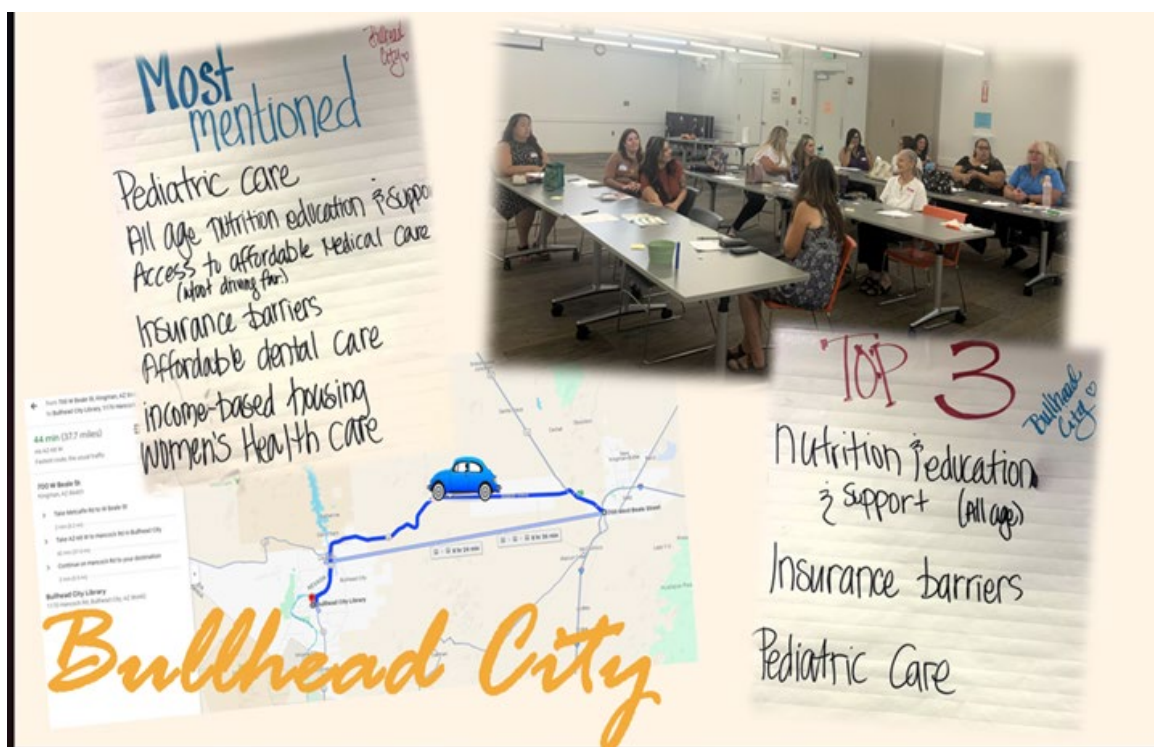 Bullhead
City
Most
mentioned
Pediatric care
All age nutrition education & suppo
Access to affordable Medical Care
(w/out driving far)
Insurance barriers
Affordable dental care
income-based housing
women's Health care
TOP 3
Bullhead
City
Nutrition & education
& support (All age)
Insurance barriers
Pediatric Care
from 700 W Beale St, Kingman, AZ
to Bullhead City Library, 1170 Hancock
44 min (37.7 miles)
via AZ-68 W
Fastest route, the usual traffic
700 W Beale St
Kingman, AZ 86401
Take Metcalfe Rd to W Beale St
Take AZ-68 W to Hancock Rd in Bullhead City
Continue on Hancock Rd to your destination
Bullhead City Library
1170 Hancock Rd, Bullhead City, AZ 86442
700 West Beale Street
Bullhead City
Bullhead City Library
Bullhead City